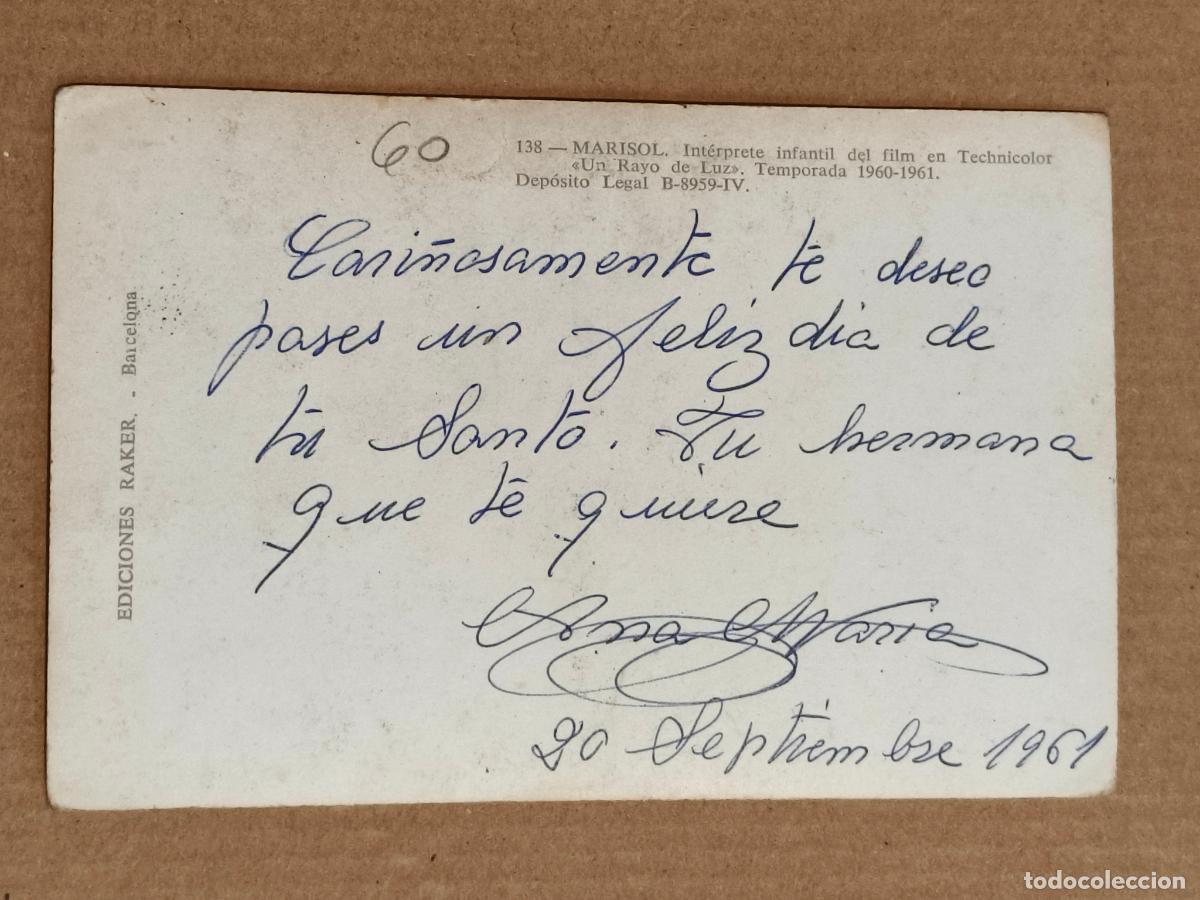 60
138 — MARISOL. Intérprete infantil del film en Technicolor
«Un Rayo de Luz». Temporada 1960-1961.
Depósito Legal B-8959-IV.
Cariñosamente te deseo
pases un feliz dia de
tu Santo. Tu hermana
que te quiere
Ana Maria
20 Septiembre 1961
EDICIONES RAKER. - Barcelona
todocoleccion